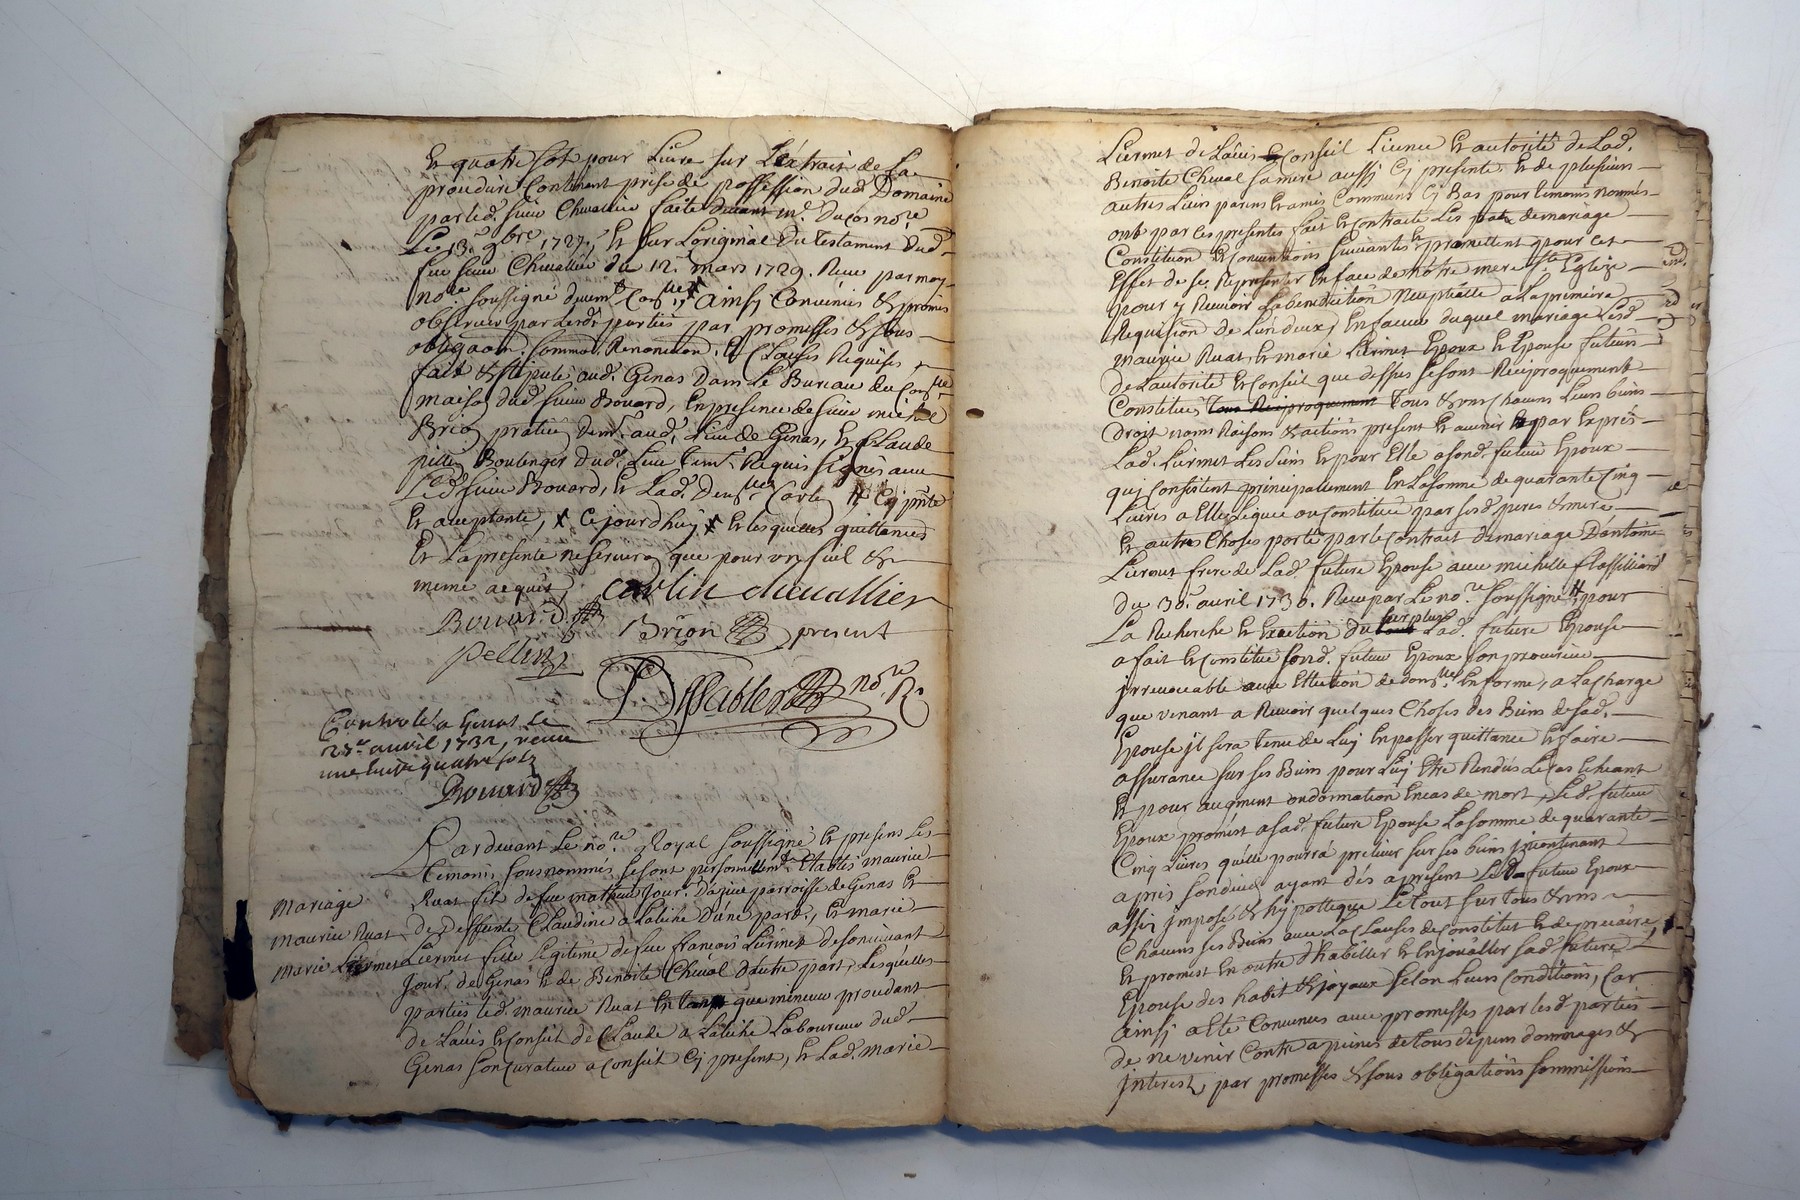 et quatre sols pour livre sur L'extrait de La
procedure Contenant prise de possession dud. Domaine
par led. sieur Chevallier faite devant me. Ducos nore.
Le 13e. 9bre. 1727, et sur Loriginal du testament dud.
feu sieur Chevallier du 12e. mars 1729. Receu par moy
nore. soussigné ainsy Convenus & promis
observer par lesd. parties par promesses & sous
obligaon. sommon. Renonciaon. et Clauses Requises
fait & stipulé aud. Genas dans Le Bureau du
maison dud. sieur Bouard, en presence de sieur michel
Brion praticien demt. aud. Lieu de Genas, et Claude
pellin Boulenger dud. Lieu tem. Requis signés avec
Led. sieur Bouard, et Lad. Carlin cy pnte.
et acceptante, x ce jourdhuy x et lesquelles quittances
et La presente ne servira que pour un seul &
meme acquit,
carlin chevallier
Bouard
Brion present
pellin
Dessables nore. R.
Controllé a Genas Le
25e. avril 1732, receu
une livre quatre sols
Bouard
Pardevant Le nore. Royal soussigné et presens Les
temoins sousnommés se sont personellemt. Etablis maurice
Ruat fils de feu mathieu jour. d'azieu parroisse de Genas et
de deffunte Claudine a Latihe d'une part, et marie
Liermet fille Legitime de feu françois Liermet de son vivant
jour. de Genas et de Benoite Cheval d'autre part, Lesquelles
parties led. maurice Ruat en tant que mineur procedant
de L'avis et Conseil de Claude a Latihe Laboureur dud.
Genas son Curateur a Conseil cy present, et Lad. marie
Mariage
maurice Ruat
marie Liermet
Liermet de L'avis et Conseil Licence et autorité de Lad.
Benoite Cheval sa mere aussy cy presente et de plusieurs
autres Leurs parens et amis Communs cy Bas pour temoins nommés
ont par ces presentes fait et Contracté Les pate de mariage
Constitution et Conventions suivantes et promettent pour cet
Effet de se Representer En face de nôtre mere ste. Eglize
pour y Recevoir La benediction nuptialle a La premiere
Requision de Lun deux, En faveur duquel mariage Lesd.
maurice Ruat, et marie Liermet Epoux et Epouse futurs
de L'autorité et Conseil que dessus se sont Reciproquement
Constitués tous Reciproquement tous & uns chacuns Leurs biens
droit noms Raisons & actions present et avenir et par Exprès
Lad. Liermet Les siens et pour Elle a sond. futur Epoux
qui Consistent principalement En La somme de quarante Cinq
Livres a Elle Leguée ou Constituée par sesd. peres & mere
et autres Choses porté par le Contrait de mariage D'antoine
Liermet frere de Lad. future Epouse avec michelle
du 30e. avril 1730. Receu par Le nore. soussigné pour
La Recherche et Exaction du tout surplus Lad. future Epouse
a fait et Constitué sond. futur Epoux son procureur
irrevocable avec Ellection de domlle. en forme, a La charge
que venant a Recevoir quelques Choses des Biens de sad.
Epouse il sera tenu de Luy En passer quittance et faire
assurance sur ses Biens pour Luy Etre Rendus Le cas Echeant
et pour augment ou donnation En cas de mort, Led. futur
Epoux promest a sad. future Epouse La somme de quarante
Cinq Livres qu'elle pourra prelever sur ses biens
apres son deced ayant dés apresent Led. futur Epoux
assis imposé & hypotteque Le tout sur tous & uns
Chacuns ses Biens avec La Clauses de Constitut et de precaire,
et promest En outre d'habiller et Enjoualler sad. future
Epouse des habit & joyaux selon Leurs Conditions, Car
ainsy a Eté Convenu avec promesses par lesd. parties
de ne venir Contre a peines de tous depens dommages &
interest, par promesses & sous obligations sommissions